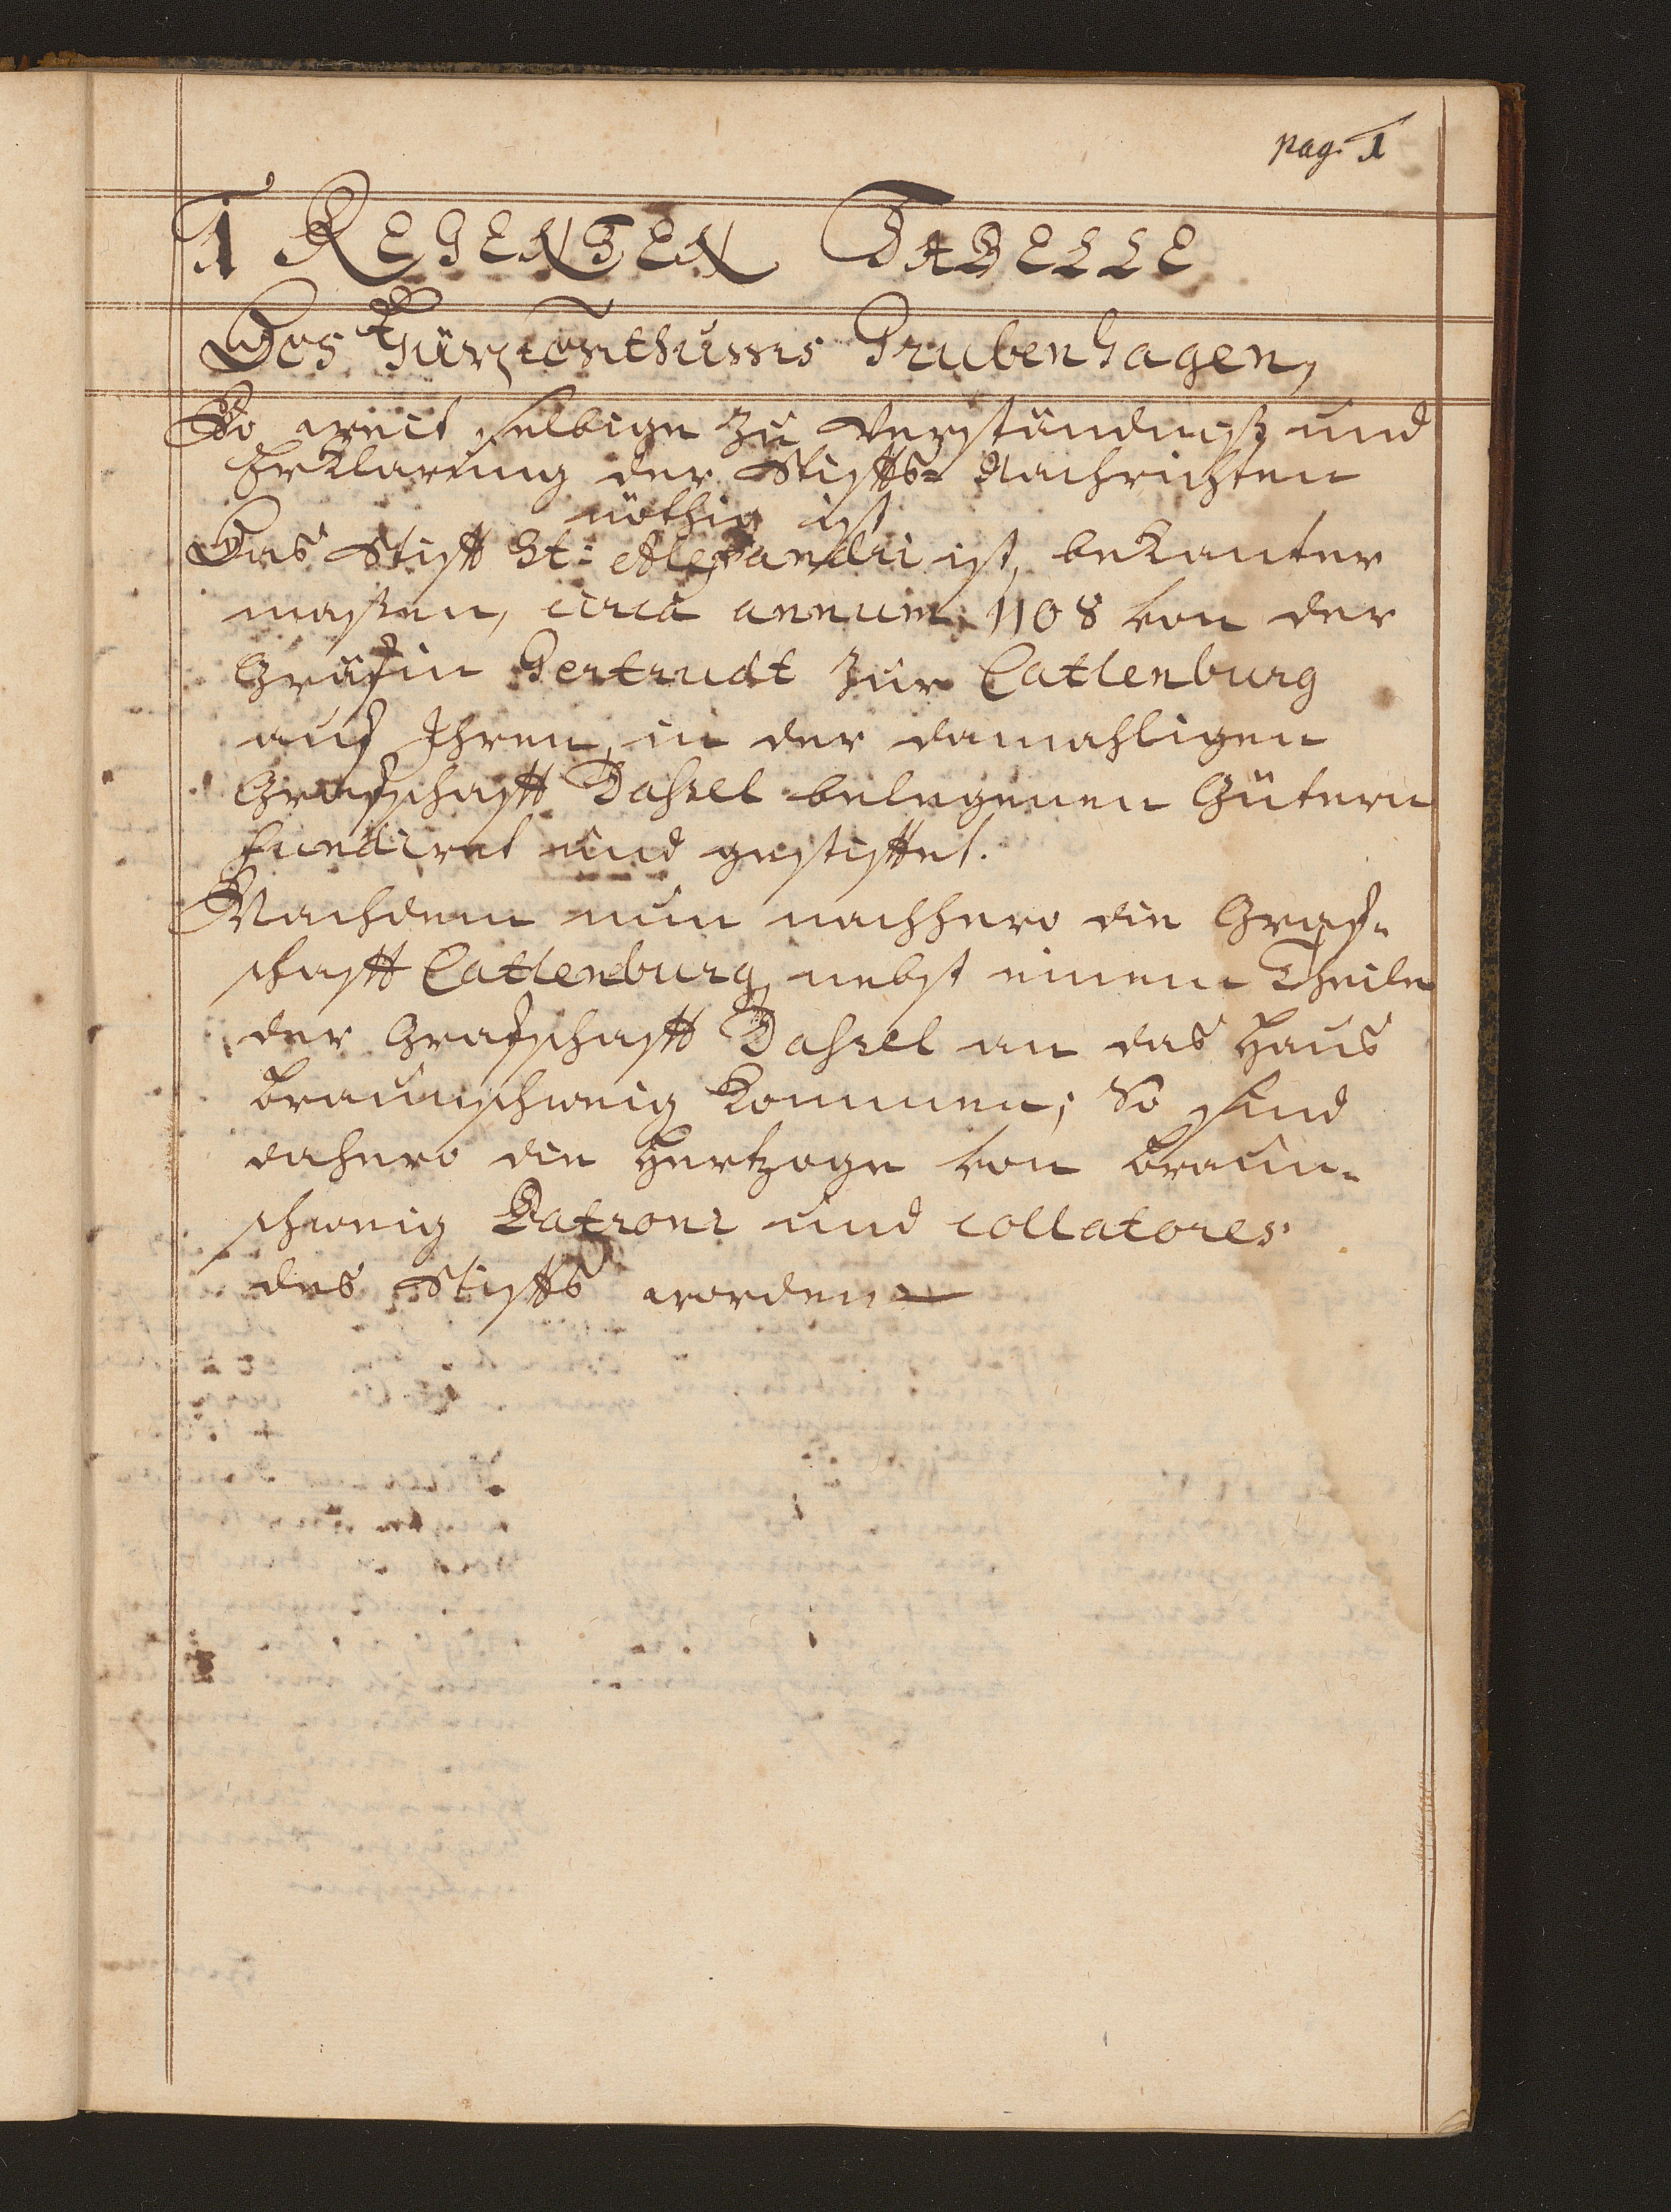 pag. 1
1 REGENTEN TABELLE
Des Fürstenthums Grubenhagen,
So weit selbige zu Verständniß und
Erklarung der Stiffts- Nachrichten
nöthig ist
Das Stifft St: Alexandri ist, bekanter
maßen, circa annum 1108 von der
Gräfin Gertrudt zur Catlenburg
auf Ihren, in der damahligen
Grafschafft Daßel belegenen Gütern
fundiret und gestifftet.
Nachdem nun nachhero die Graf-
schafft Catlenburg, nebst einem Theile
der Grafschafft Daßel an das Haus
Braunschweig kommen; So sind
dahero die Hertzoge von Braun-
schweig Patroni und collatores
des Stiffts worden